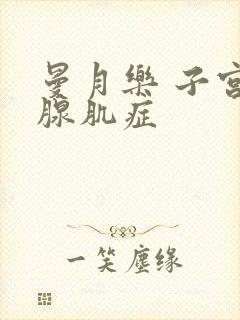 曼月樂 子宮
腺肌症
一笑塵缘